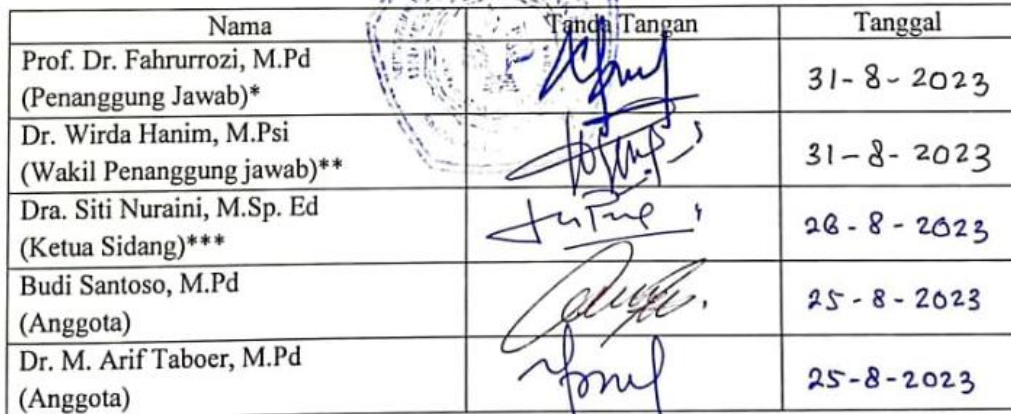 Nama Tanda Tangan Tanggal
Prof. Dr. Fahrurrozi, M.Pd
(Penanggung Jawab)* 31-8-2023
Dr. Wirda Hanim, M.Psi
(Wakil Penanggung jawab)** 31-8-2023
Dra. Siti Nuraini, M.Sp. Ed
(Ketua Sidang)*** 28-8-2023
Budi Santoso, M.Pd
(Anggota) 25-8-2023
Dr. M. Arif Taboer, M.Pd
(Anggota) 25-8-2023